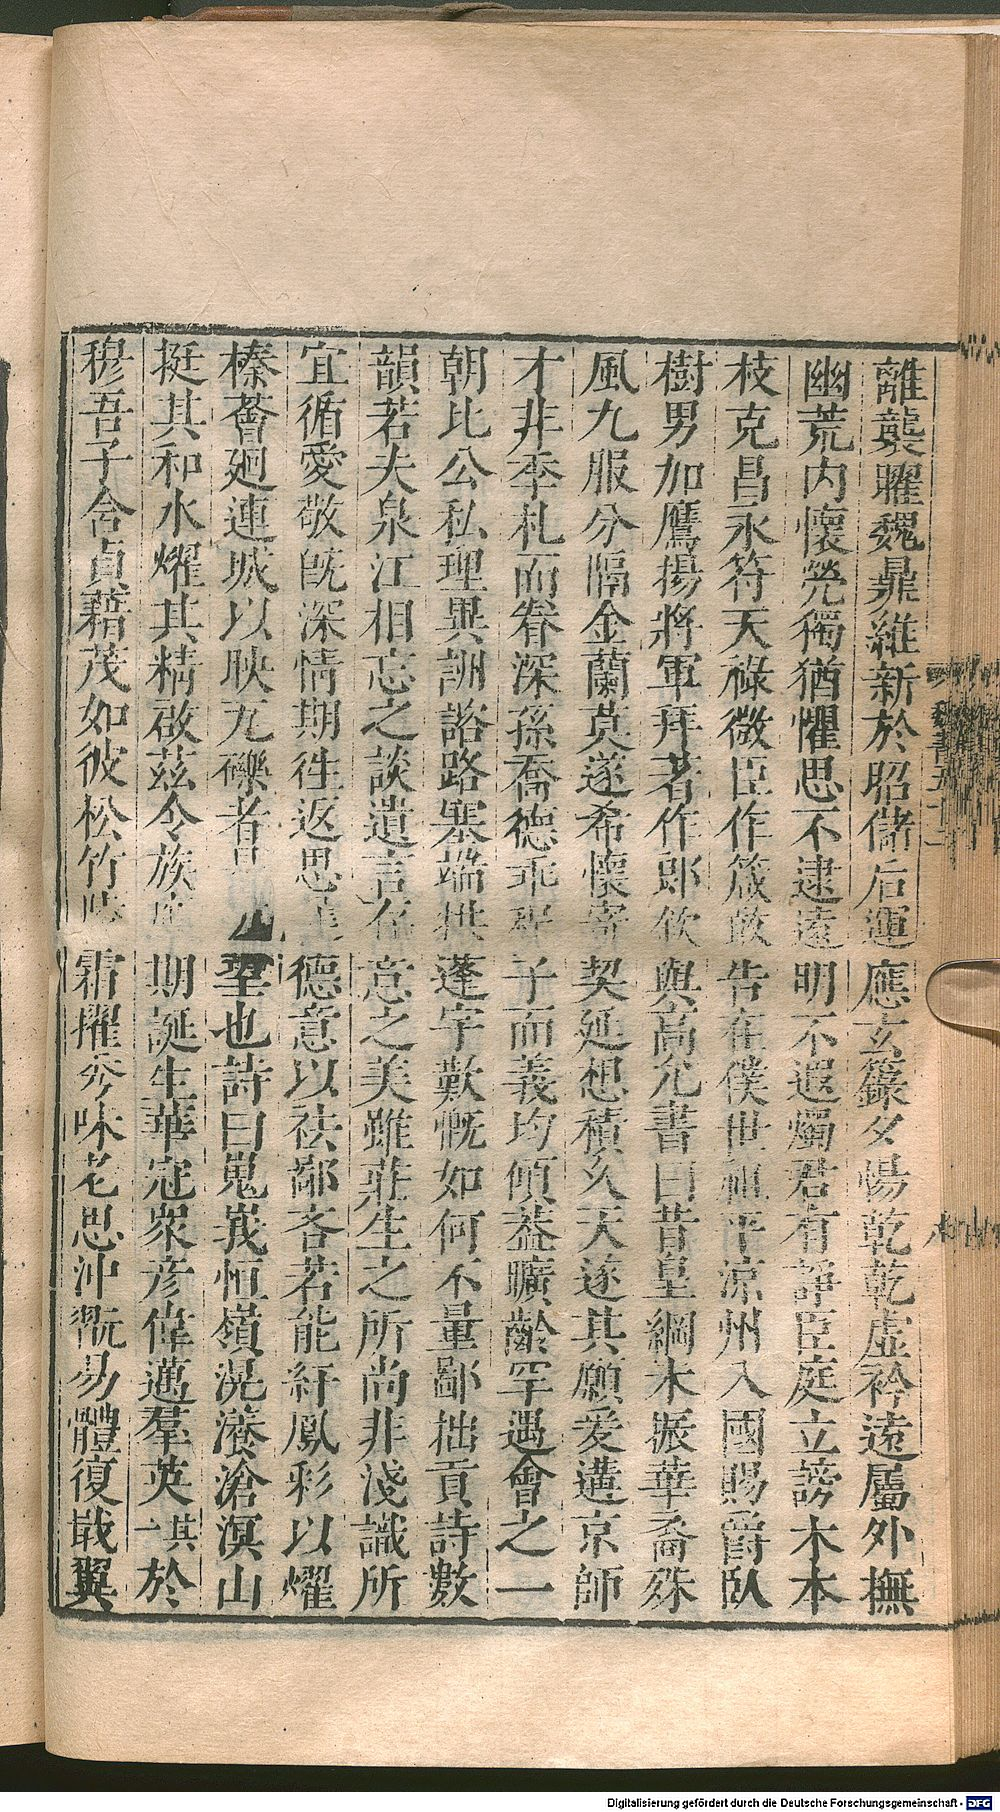 離襲曜魏鼎維新於昭儲后運應玄籙夕惕乾乾虛衿遠屬外撫
幽荒内懷煢獨猶懼思不逮遠明不遐燭君有諍臣庭立謗木本
枝克昌永符天祿微臣作箴敢告在僕世祖平涼州入國賜爵臥
樹男加鷹揚將軍拜著作郎欽與高允書曰昔皇綱未振華裔殊
風九服分隔金蘭莫遂希懷寄契延想積久天遂其願爰遘京師
才非季札而眷深孫喬德乖程子而義均傾蓋曠齡罕遇會之一
朝比公私理異訓諮路塞端拱蓬宇歎慨如何不量鄙拙貢詩數
韻若夫泉江相忘之談遺言存意之美雖莊生之所尚非淺識所
宜循愛敬既深情期往返思遲德意以祛鄙吝若能紆鳳彩以燿
榛薈廻連城以映瓦礫者是所望也詩曰嵬峩恒嶺滉瀁滄溟山
挺其和水燿其精啟茲令族應期誕生華冠衆彦偉邁羣英其一於
穆吾子含貞藉茂如彼松竹陵霜擢秀味老思沖翫易體復戢翼
魏書五十二
Digitalisierung gefördert durch die Deutsche Forschungsgemeinschaft - DFG